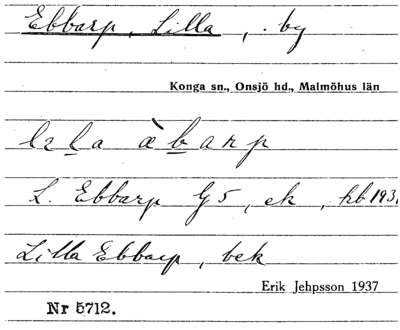 Ebbarp, Lilla, by
Konga sn., Onsjö hd., Malmöhus län
lala àbarp
L. Ebbarp G 5, ek, hb 193
Lilla Ebbarp, bek
Erik Jehpsson 1937
Nr 5712.